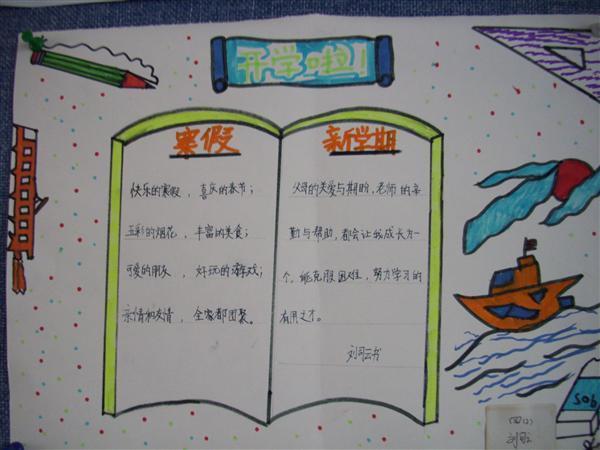 开学啦！
寒假
快乐的寒假，喜庆的春节；
五彩的烟花，丰富的美食；
可爱的朋友，好玩的游戏；
亲情和友情，全家都团聚。
新学期
父母的关爱与期盼，老师的辛
勤与帮助，都会让我成长为一
个，能克服困难，努力学习的
有用之才。